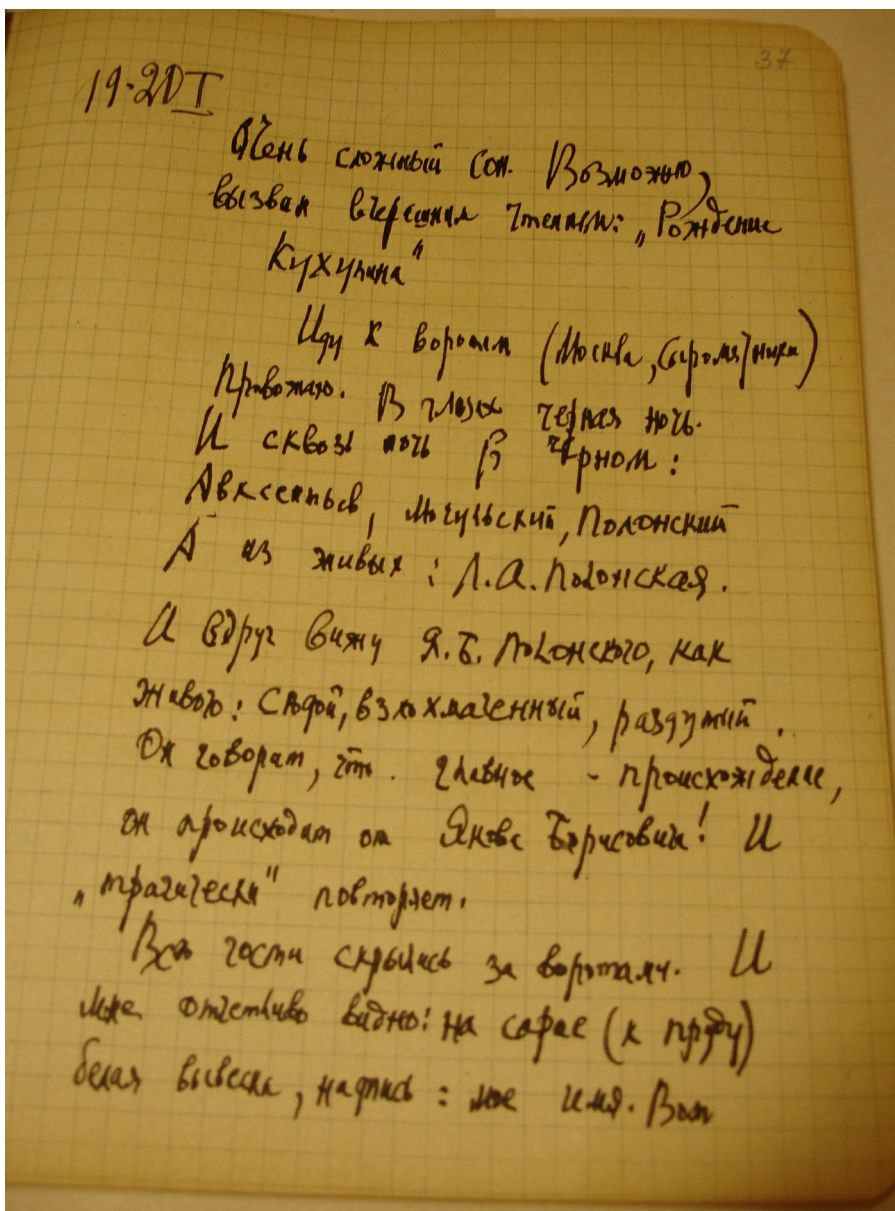 37
19-20 I
Очень сложный сон. Возможно,
вызван вчерашним чтением: „Рождение
Кухулина"
Иду к воротам (Москва, Сыромятники)
Провожаю. В глазах черная ночь.
И сквозь ночь в черном:
Авксентьев, Мочульский, Полонский
А из живых: Л.А. Полонская.
И вдруг вижу Я.Б. Полонского, как
живого: Седой, взлохмаченный, раздутый.
Он говорит, что главное - происхождение,
он происходит от Якова Борисовича! И
„трагически" повторяет.
Все гости скрылись за воротами. И
мне отчетливо видно: на сарае (к пруду)
белая вывеска, надпись: мое имя. Вот